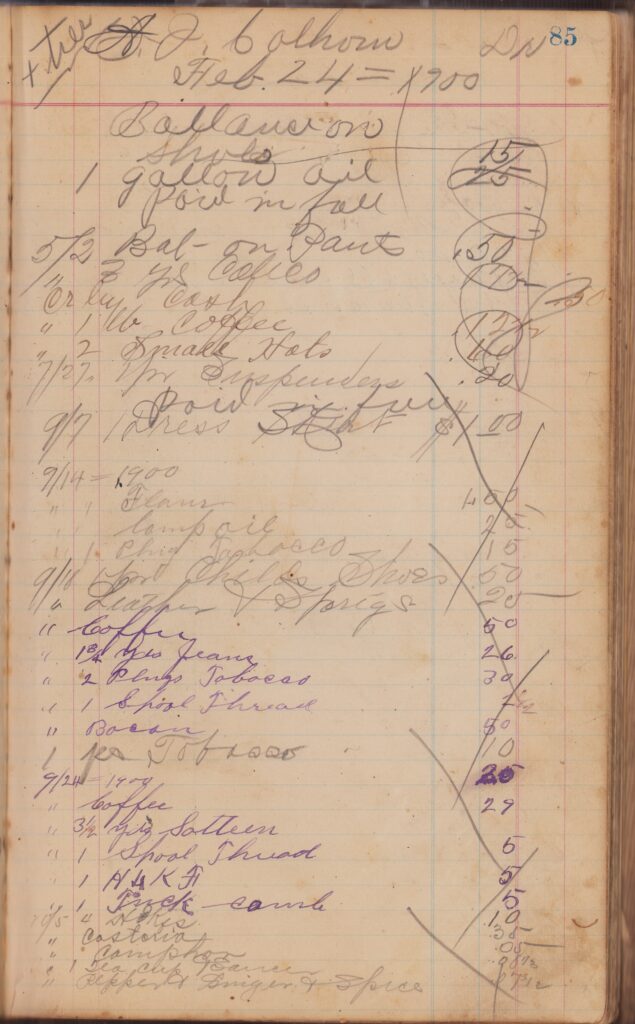 A. J. Calhoun Dr 85
Feb. 24 = 1900
Ballance on
Shoes 15
1 gallon oil 25
Paid in full
5/2 Bal- on Pants .50
" 3 yds Calico
Cr by Cash
" 1 lb Coffee 12 1/2
" 2 Small Hats
7/27 1 pr Suspenders .20
Paid in full
9/7 1 Dress Skirt $1.00
9/14 = 1900
" 1 Flour 4 00
" Lamp oil
" 1 Plug Tobacco 15
9/18 1 pr Childs Shoes 50
" Leather & Sprigs 20
" Coffee 50
" 1 3/4 yds Jeans 26
" 2 Plugs Tobacco 30
" 1 Spool Thread
" Bacon 50
1 pc Tobacco 10
9/24 = 1900 25
" Coffee 29
" 3 1/2 yds Satteen
" 1 Spool Thread 5
" 1 H & K F 5
" 1 Tuck comb 5
10/5 " 10
" Castoria
" Camphor .05
" 1 Tea Cup & Saucer
" Pepper & Ginger & Spice